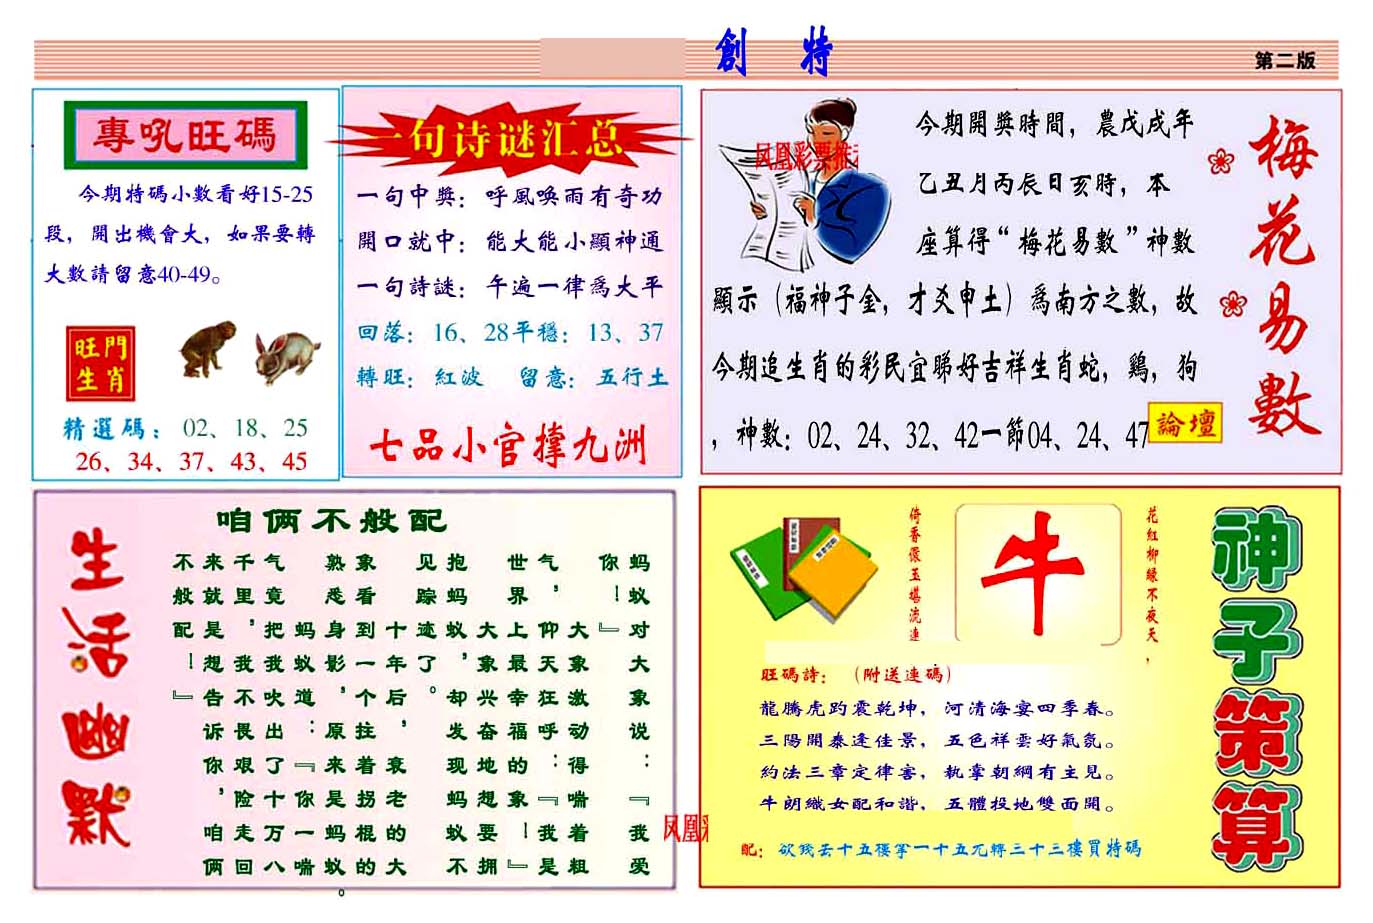 創 特
第二版
專吼旺碼
今期特碼小數看好15-25
段，開出機會大，如果要轉
大數請留意40-49。
旺門
生肖
精選碼：02、18、25
26、34、37、43、45
一句诗谜汇总
一句中獎：呼風喚雨有奇功
開口就中：能大能小顯神通
一句詩謎：午遍一律爲大平
回落：16、28平穩：13、37
轉旺：紅波 留意：五行土
七品小官撑九洲
凤凰彩票推
今期開獎時間，農戊戌年
乙丑月丙辰日亥時，本
座算得“梅花易數”神數
顯示（福神子金，才爻申土）爲南方之數，故
今期追生肖的彩民宜睇好吉祥生肖蛇，鷄，狗
，神數：02、24、32、42一節04、24、47
論壇
梅花易數
生活幽默
咱俩不般配
蚂蚁对大象说：『我爱
你！』
大象激动得喘着粗
气，仰天狂呼：『我是
世界上最幸福的象！』
大象兴奋地想要拥
抱蚂蚁，却发现蚂蚁不
见踪迹了。
十年后，衰老的大
象看到一个拄着拐棍的
熟悉身影，原来是蚂蚁。
蚂蚁道：『你一喘
气竟把我吹出了十万八
千里，我不畏艰险走回
来就是想告诉你，咱俩
不般配！』
凤凰彩
神子策算
花紅柳綠不夜天，
牛
倚香偎玉堪流連
旺碼詩：（附送連碼）
龍騰虎趵震乾坤，河清海宴四季春。
三陽開泰逢佳景，五色祥雲好氣氛。
約法三章定律害，執掌朝綱有主見。
牛朗織女配和諧，五體投地雙面開。
配：欲錢去十五樓拿一十五元轉三十三樓買特碼